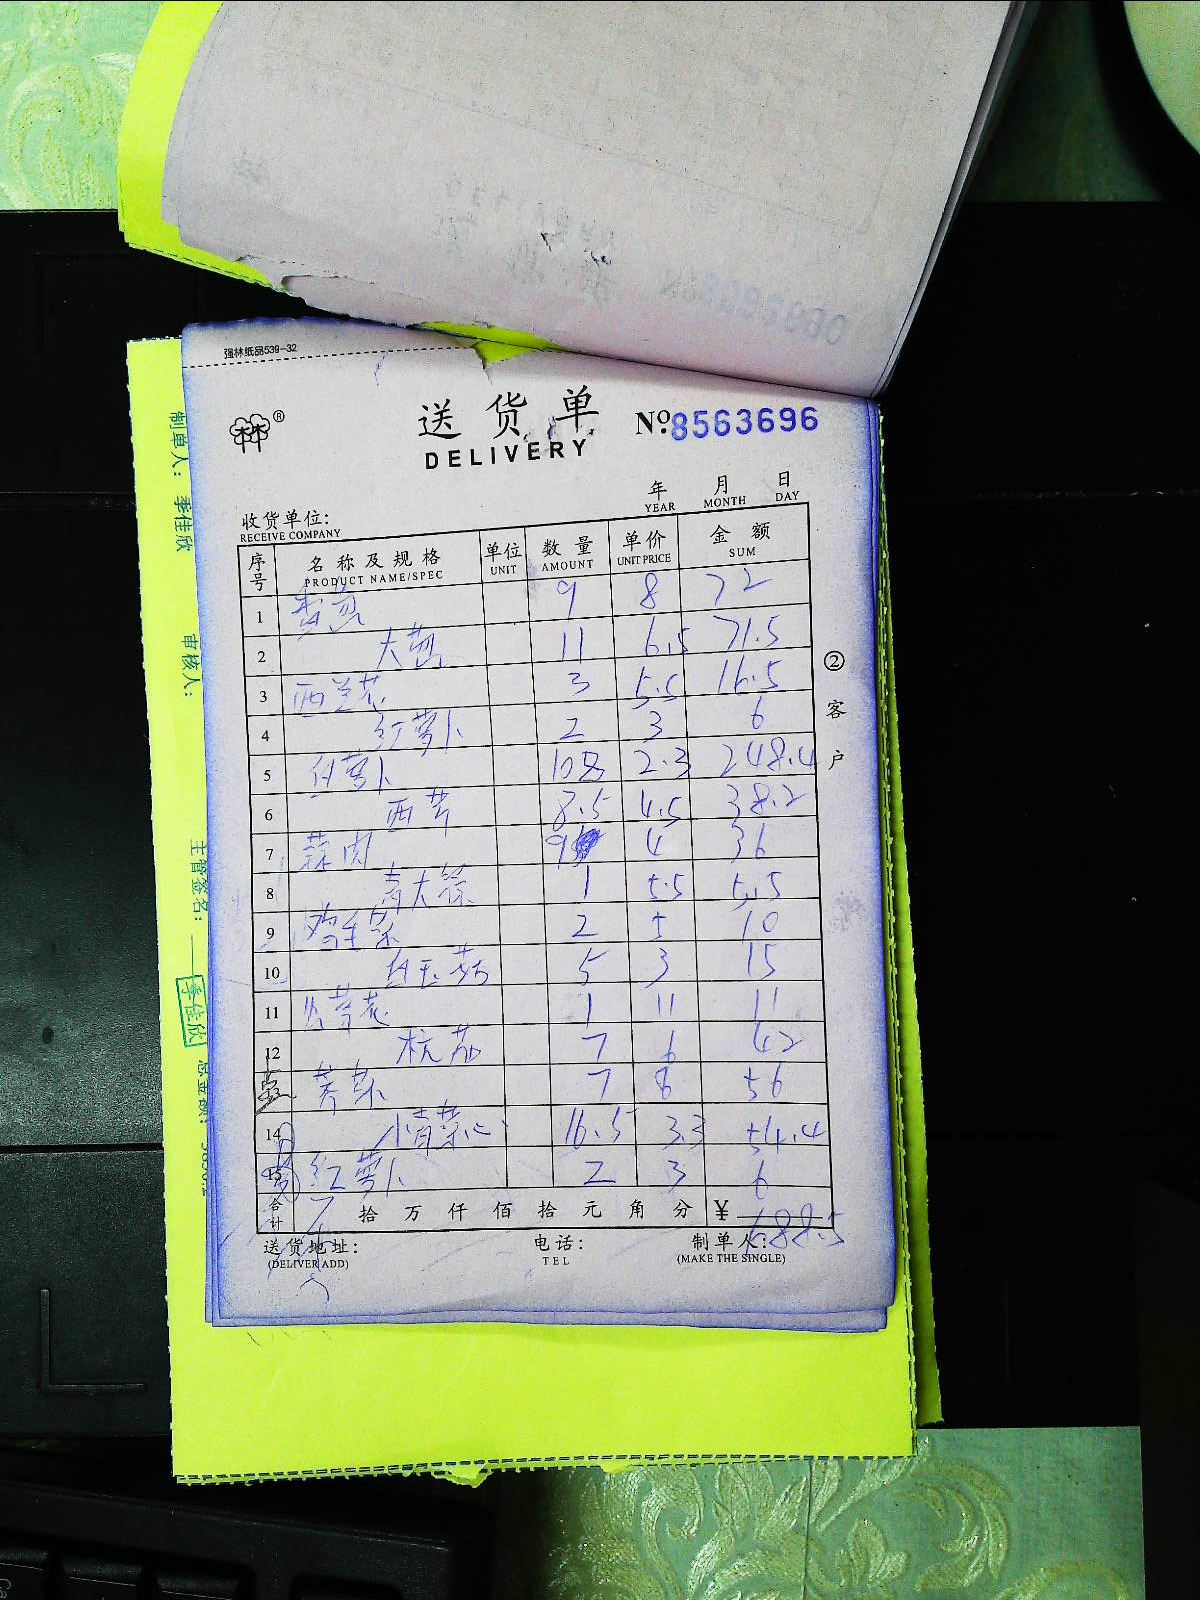 强林纸品539-32
林®
送货单
DELIVERY
Nº.8563696
年 月 日
YEAR MONTH DAY
收货单位:
RECEIVE COMPANY
序号 名称及规格 单位 数量 单价 金额
PRODUCT NAME/SPEC UNIT AMOUNT UNIT PRICE SUM
1 香葱 9 8 72
2 大葱 11 6.5 71.5
3 西兰花 3 5.5 16.5
4 红萝卜 2 3 6
5 白萝卜 108 2.3 248.4
6 西芹 8.5 4.5 38.2
7 蒜肉 9 4 36
8 青大蒜 1 5.5 5.5
9 鸡毛菜 2 5 10
10 白玉菇 5 3 15
11 1 11 11
12 杭茄 7 6 42
荠菜 7 8 56
14 小青菜心 16.5 3.3 54.4
15 红萝卜 2 3 6
合计 拾 万 仟 佰 拾 元 角 分 ¥ 688.5
送货地址: 电话: 制单人:
(DELIVER ADD) TEL (MAKE THE SINGLE)
②客户
制单人: 季佳欣
审核人:
主管签名:
季佳欣
总金额: